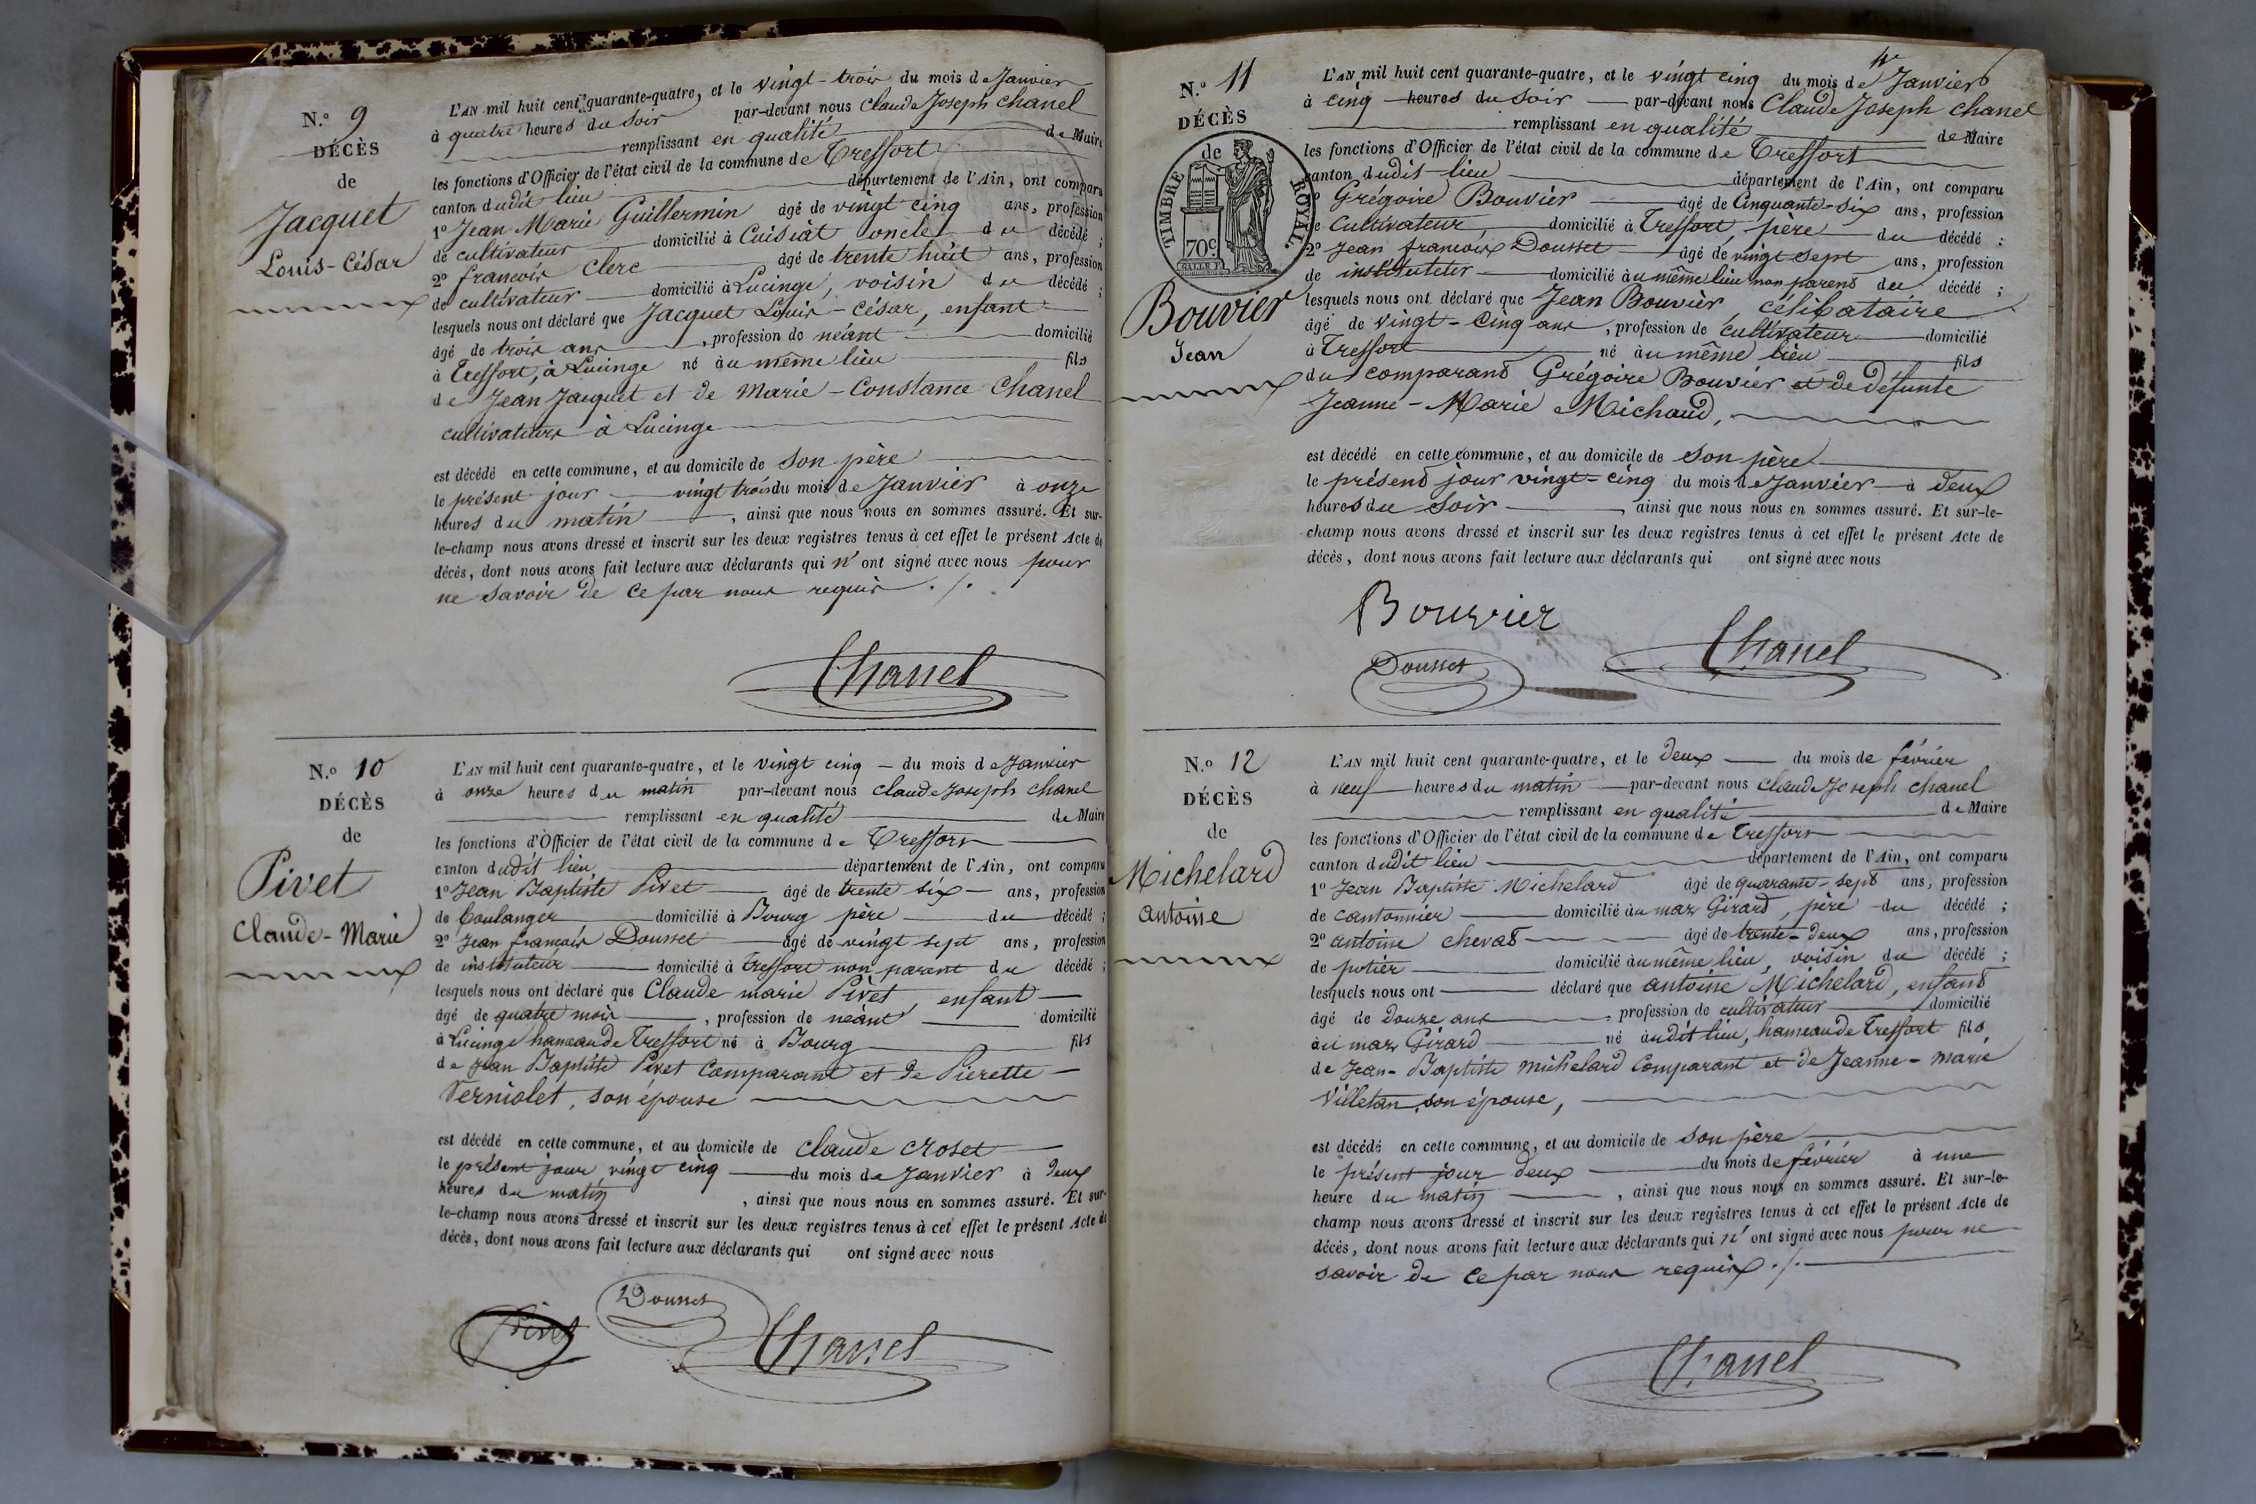 N.º 9
DÉCÈS
de
Jacquet
Louis-César
L'AN mil huit cent quarante-quatre, et le vingt-trois du mois de Janvier
à quatre heures du soir par-devant nous Claude Joseph Chanel
remplissant en qualité de Maire
les fonctions d'Officier de l'état civil de la commune de Treffort
canton dudit lieu département de l'Ain, ont comparu
1º Jean Marie Guillermin âgé de vingt cinq ans, profession
de cultivateur domicilié à Cuisiat oncle du décédé ;
2º francois Clerc âgé de trente huit ans, profession
de cultivateur domicilié à Lucinge, voisin du décédé ;
lesquels nous ont déclaré que Jacquet Louis-César, enfant
âgé de trois ans, profession de néant domicilié
à Treffort, à Lucinge né au même lieu fils
de Jean Jacquet et de Marie-Constance Chanel
cultivateurs à Lucinge
est décédé en cette commune, et au domicile de son père
le présent jour vingt trois du mois de Janvier à onze
heures du matin, ainsi que nous nous en sommes assuré. Et sur-
le-champ nous avons dressé et inscrit sur les deux registres tenus à cet effet le présent Acte de
décès, dont nous avons fait lecture aux déclarants qui n'ont signé avec nous pour
ne savoir de ce par nous requis ./.
Chanel
N.º 10
DÉCÈS
de
Pivet
Claude-Marie
L'AN mil huit cent quarante-quatre, et le vingt cinq du mois de Janvier
à onze heures du matin par-devant nous Claude Joseph Chanel
remplissant en qualité de Maire
les fonctions d'Officier de l'état civil de la commune de Treffort
canton dudit lieu département de l'Ain, ont comparu
1º Jean Baptiste Pivet âgé de trente six ans, profession
de boulanger domicilié à Bourg père du décédé ;
2º Jean francois Dousset âgé de vingt sept ans, profession
de instituteur domicilié à Treffort non parent du décédé ;
lesquels nous ont déclaré que Claude marie Pivet, enfant
âgé de quatre mois, profession de néant domicilié
à Lucinge hameau de Treffort né à Bourg fils
de Jean Baptiste Pivet Comparant et de Pierette
Verniolet, son épouse
est décédé en cette commune, et au domicile de Claude Croset
le présent jour vingt cinq du mois de Janvier à deux
heures du matin, ainsi que nous nous en sommes assuré. Et sur-
le-champ nous avons dressé et inscrit sur les deux registres tenus à cet effet le présent Acte de
décès, dont nous avons fait lecture aux déclarants qui ont signé avec nous
Dousset
Pivet Chanel
N.º 11
DÉCÈS
de
TIMBRE ROYAL.
70 c.
Bouvier
Jean
L'AN mil huit cent quarante-quatre, et le vingt cinq du mois de Janvier
à cinq heures du soir par-devant nous Claude Joseph Chanel
remplissant en qualité de Maire
les fonctions d'Officier de l'état civil de la commune de Treffort
canton dudit lieu département de l'Ain, ont comparu
Grégoire Bouvier âgé de Cinquante-six ans, profession
de Cultivateur domicilié à Treffort, père du décédé ;
2º Jean francois Dousset âgé de vingt sept ans, profession
de instituteur domicilié au même lieu non parent du décédé ;
lesquels nous ont déclaré que Jean Bouvier, célibataire
âgé de vingt-cinq ans, profession de cultivateur domicilié
à Treffort né au même lieu fils
du comparant Grégoire Bouvier et de défunte
Jeanne-Marie Michaud,
est décédé en cette commune, et au domicile de son père
le présent jour vingt-cinq du mois de Janvier à deux
heures du soir, ainsi que nous nous en sommes assuré. Et sur-le-
champ nous avons dressé et inscrit sur les deux registres tenus à cet effet le présent Acte de
décès, dont nous avons fait lecture aux déclarants qui ont signé avec nous
Bouvier
Dousset Chanel
N.º 12
DÉCÈS
de
Michelard
antoine
L'AN mil huit cent quarante-quatre, et le deux du mois de février
à neuf heures du matin par-devant nous Claude Joseph Chanel
remplissant en qualité de Maire
les fonctions d'Officier de l'état civil de la commune de Treffort
canton dudit lieu département de l'Ain, ont comparu
1º Jean Baptiste Michelard âgé de quarante-sept ans, profession
de cantonnier domicilié au mas Girard, père du décédé ;
2º antoine chevat âgé de trente-deux ans, profession
de potier domicilié au même lieu, voisin du décédé ;
lesquels nous ont déclaré que antoine Michelard, enfant
âgé de douze ans, profession de cultivateur domicilié
au mas Girard né audit lieu, hameau de Treffort fils
de Jean-Baptiste michelard Comparant et de Jeanne-marie
Villetan, son épouse,
est décédé en cette commune, et au domicile de son père
le présent jour deux du mois de février à une
heure du matin, ainsi que nous nous en sommes assuré. Et sur-le-
champ nous avons dressé et inscrit sur les deux registres tenus à cet effet le présent Acte de
décès, dont nous avons fait lecture aux déclarants qui n'ont signé avec nous pour ne
savoir de ce par nous requis ./.
Chanel